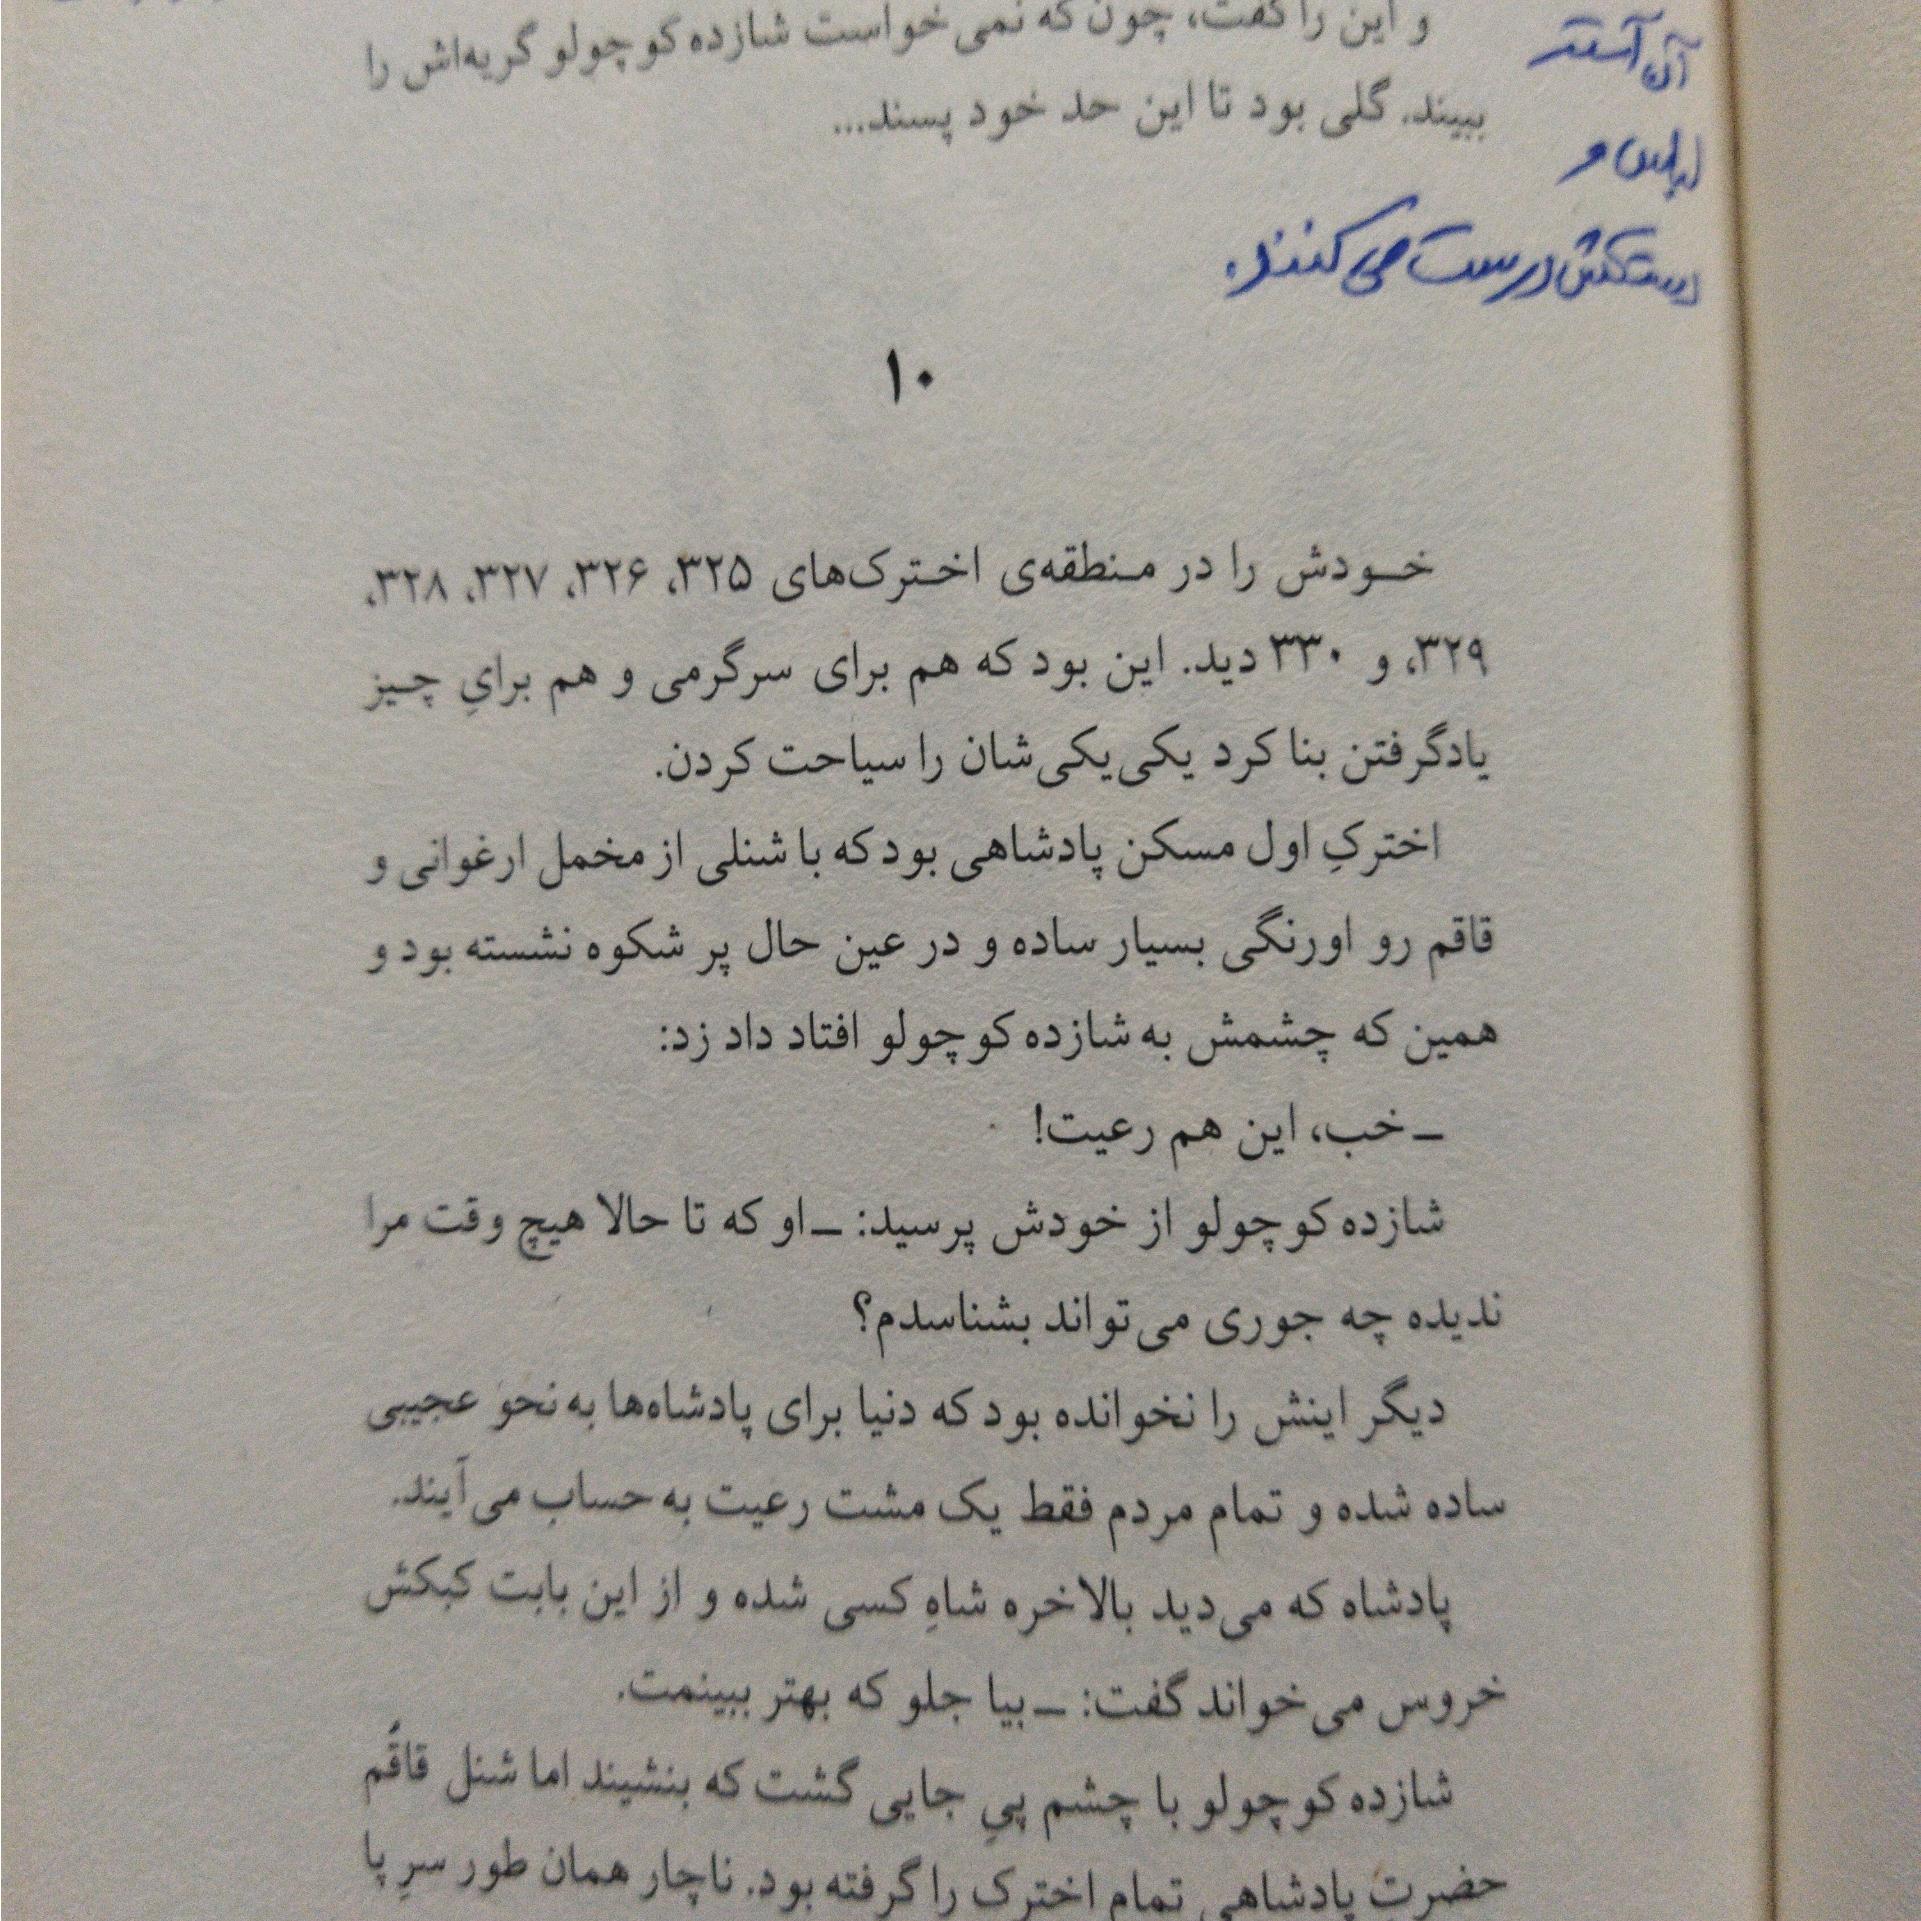 و این را گفت، چون که نمی‌خواست شازده کوچولو گریه‌اش را
ببیند. گلی بود تا این حد خود پسند...
آن آستر
لباس و
دستکش درست می‌کنند.
۱۰
خودش را در منطقه‌ی اخترک‌های ۳۲۵، ۳۲۶، ۳۲۷، ۳۲۸،
۳۲۹، و ۳۳۰ دید. این بود که هم برای سرگرمی و هم برایِ چیز
یادگرفتن بنا کرد یکی‌یکی‌شان را سیاحت کردن.
اخترکِ اول مسکن پادشاهی بود که با شنلی از مخمل ارغوانی و
قاقم رو اورنگی بسیار ساده و در عین حال پر شکوه نشسته بود و
همین که چشمش به شازده کوچولو افتاد داد زد:
ـ خب، این هم رعیت!
شازده کوچولو از خودش پرسید: ـ او که تا حالا هیچ وقت مرا
ندیده چه جوری می‌تواند بشناسدم؟
دیگر اینش را نخوانده بود که دنیا برای پادشاه‌ها به نحو عجیبی
ساده شده و تمام مردم فقط یک مشت رعیت به حساب می‌آیند.
پادشاه که می‌دید بالاخره شاهِ کسی شده و از این بابت کبکش
خروس می‌خواند گفت: ـ بیا جلو که بهتر ببینمت.
شازده کوچولو با چشم پیِ جایی گشت که بنشیند اما شنل قاقُم
حضرتِ پادشاهی تمام اخترک را گرفته بود. ناچار همان طور سرِ پا